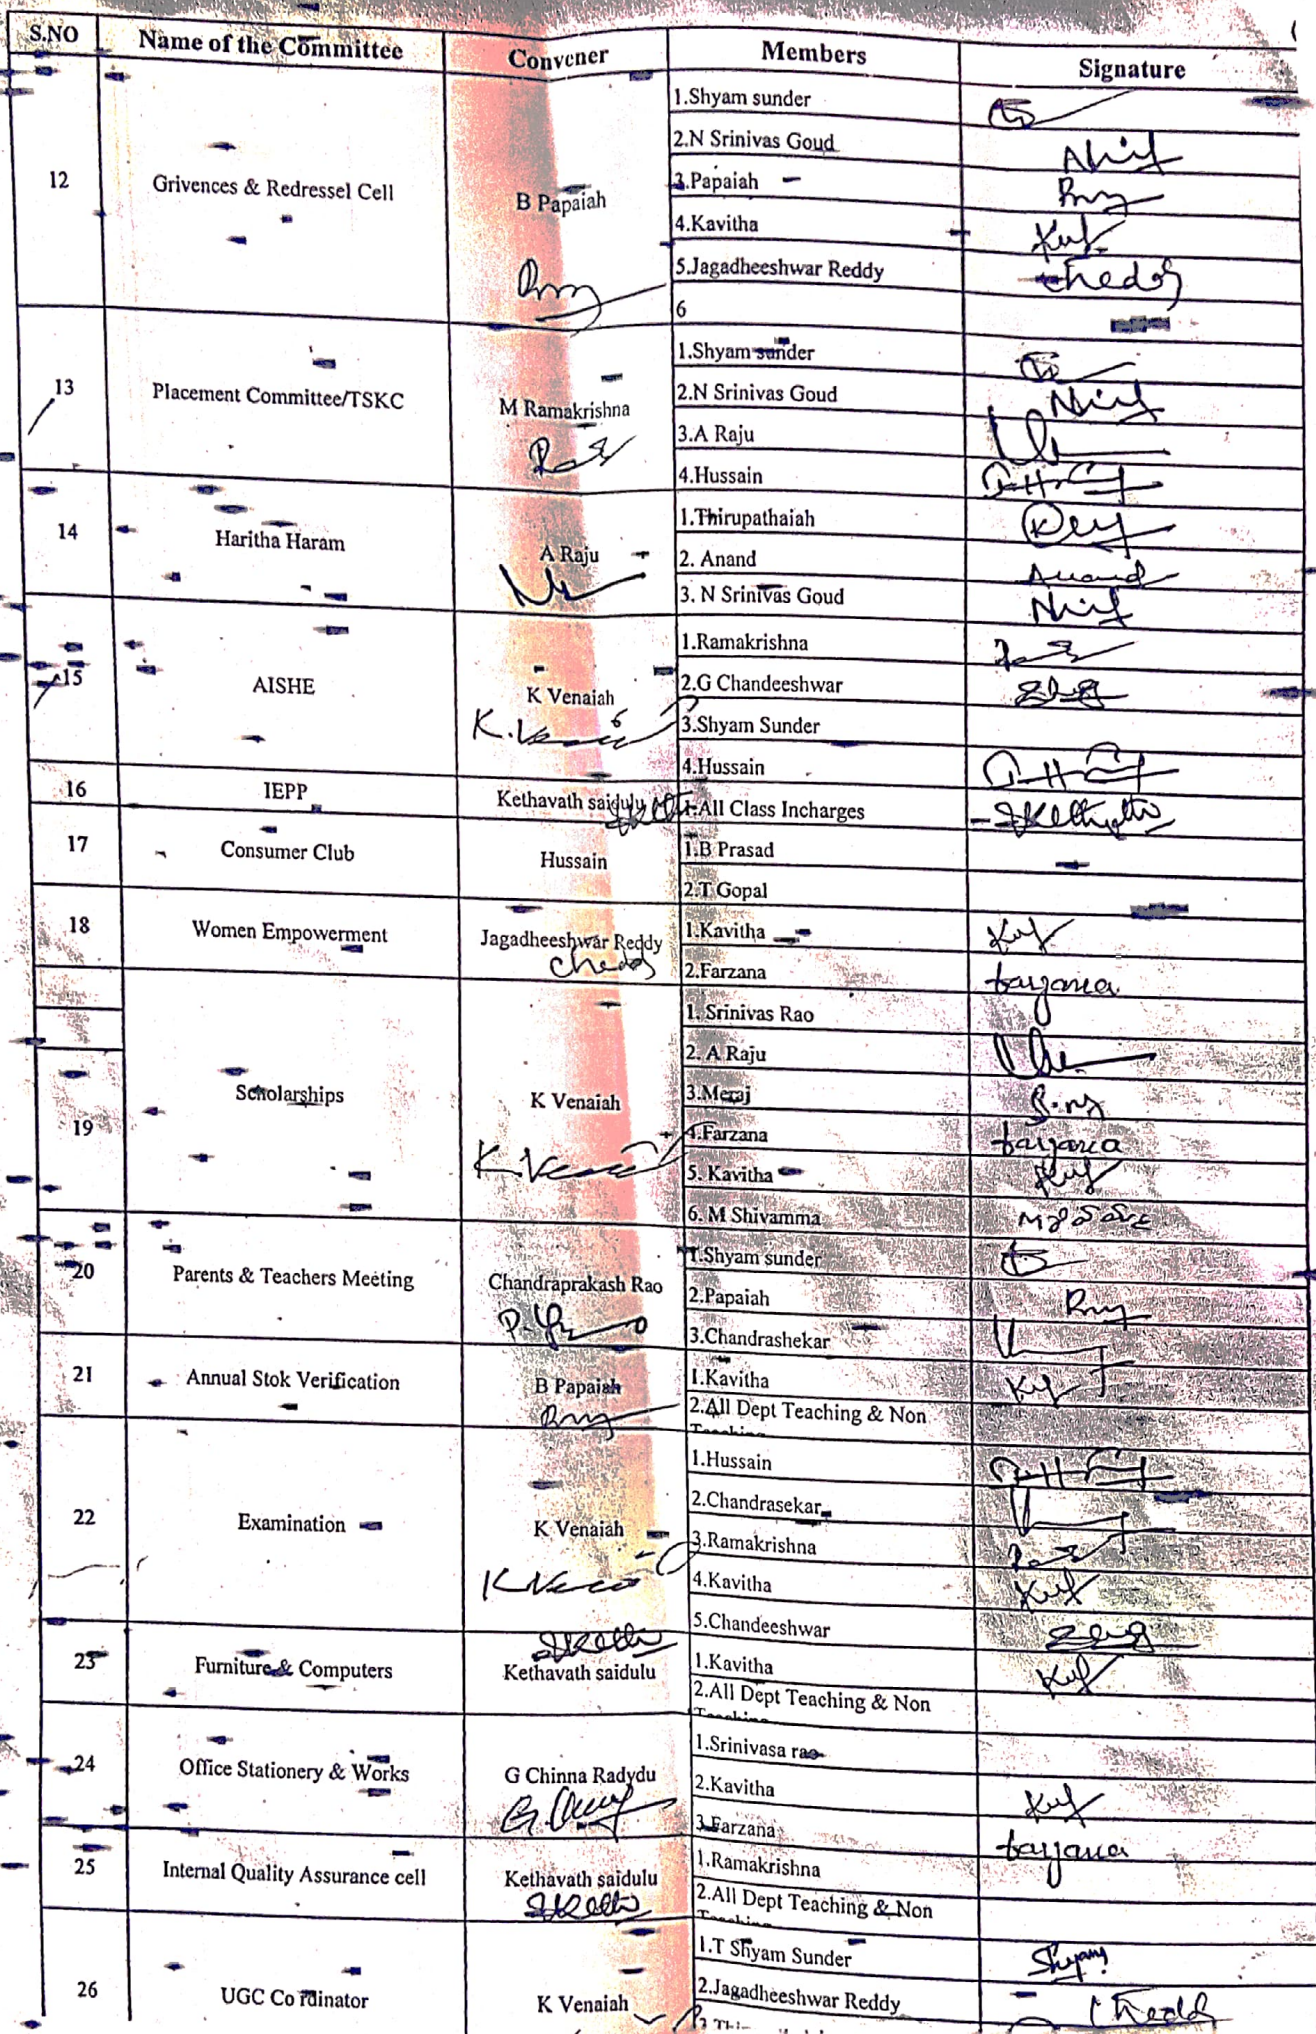 S.NO Name of the Committee Convener Members Signature
12 Grivences & Redressel Cell B Papaiah
1.Shyam sunder
2.N Srinivas Goud
3.Papaiah
4.Kavitha
5.Jagadheeshwar Reddy
6
13 Placement Committee/TSKC M Ramakrishna
1.Shyam sunder
2.N Srinivas Goud
3.A Raju
4.Hussain
14 Haritha Haram A Raju
1.Thirupathaiah
2. Anand Anand
3. N Srinivas Goud
15 AISHE K Venaiah
1.Ramakrishna
2.G Chandeeshwar
3.Shyam Sunder
4.Hussain
16 IEPP Kethavath saidulu 1.All Class Incharges
17 Consumer Club Hussain
1.B Prasad
2.T Gopal
18 Women Empowerment Jagadheeshwar Reddy
1.Kavitha
2.Farzana
19 Scholarships K Venaiah
1. Srinivas Rao
2. A Raju
3.Meraj
4.Farzana
5. Kavitha
6. M Shivamma
20 Parents & Teachers Meeting Chandraprakash Rao
1.Shyam sunder
2.Papaiah
3.Chandrashekar
21 Annual Stok Verification B Papaiah
1.Kavitha
2.All Dept Teaching & Non
Teaching
22 Examination K Venaiah
1.Hussain
2.Chandrasekar
3.Ramakrishna
4.Kavitha
5.Chandeeshwar
23 Furniture & Computers Kethavath saidulu
1.Kavitha
2.All Dept Teaching & Non
Teaching
24 Office Stationery & Works G Chinna Radydu
1.Srinivasa rao
2.Kavitha
3.Farzana
25 Internal Quality Assurance cell Kethavath saidulu
1.Ramakrishna
2.All Dept Teaching & Non
Teaching
26 UGC Co rdinator K Venaiah
1.T Shyam Sunder
2.Jagadheeshwar Reddy